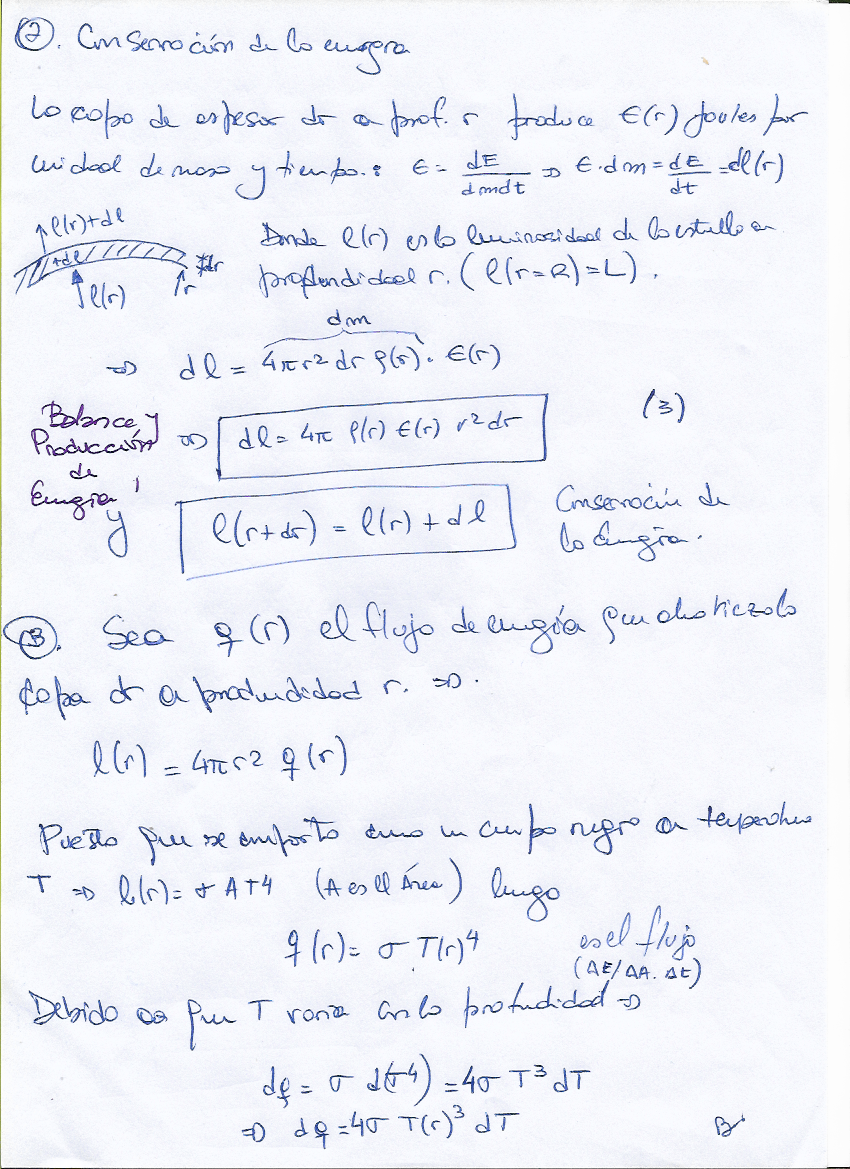 ②. Conservación de la energía
La capa de espesor dr a prof. r produce ϵ(r) Joules por
unidad de masa y tiempo.: ϵ = dE/dmdt ⇒ ϵ·dm = dE/dt = dl(r)
l(r)+dl
+dl
dr
r
l(r)
Donde l(r) es la luminosidad de la estrella a
profundidad r. ( l(r=R)=L ).
dm
⇒ dl = 4πr² dr ρ(r) · ϵ(r)
Balance y
Producción
de
Energía
⇒ dl = 4π ρ(r) ϵ(r) r² dr
(3)
y
l(r+dr) = l(r) + dl
Conservación de
la Energía.
③. Sea q(r) el flujo de energía que atraviesa la
capa dr a profundidad r. ⇒.
l(r) = 4πr² q(r)
Puesto que se comporta como un cuerpo negro a temperatura
T ⇒ l(r) = σ A T4 (A es el Área) luego
q(r) = σ T(r)⁴
es el flujo
(ΔE/ΔA. Δt)
Debido a que T varía con la profundidad ⇒
dq = σ d(T⁴) = 4σ T³ dT
⇒ dq = 4σ T(r)³ dT